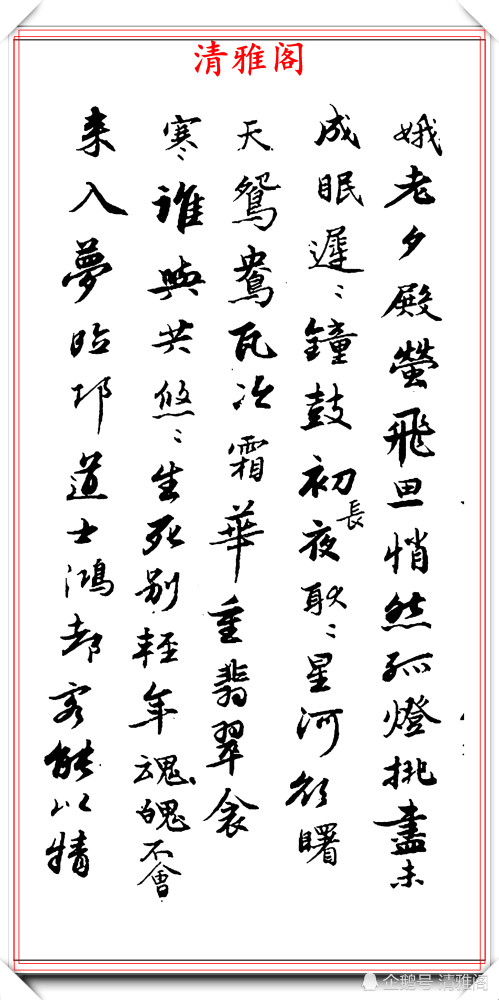 清雅阁
娥老夕殿螢飛思悄然孤燈挑盡未
成眠遲〻鐘鼓初長夜耿〻星河欲曙
天鴛鴦瓦冷霜華重翡翠衾
寒〻誰與共悠〻生死别經年魂魄不曾
来入夢臨邛道士鴻都客能以精
企鹅号 清雅阁